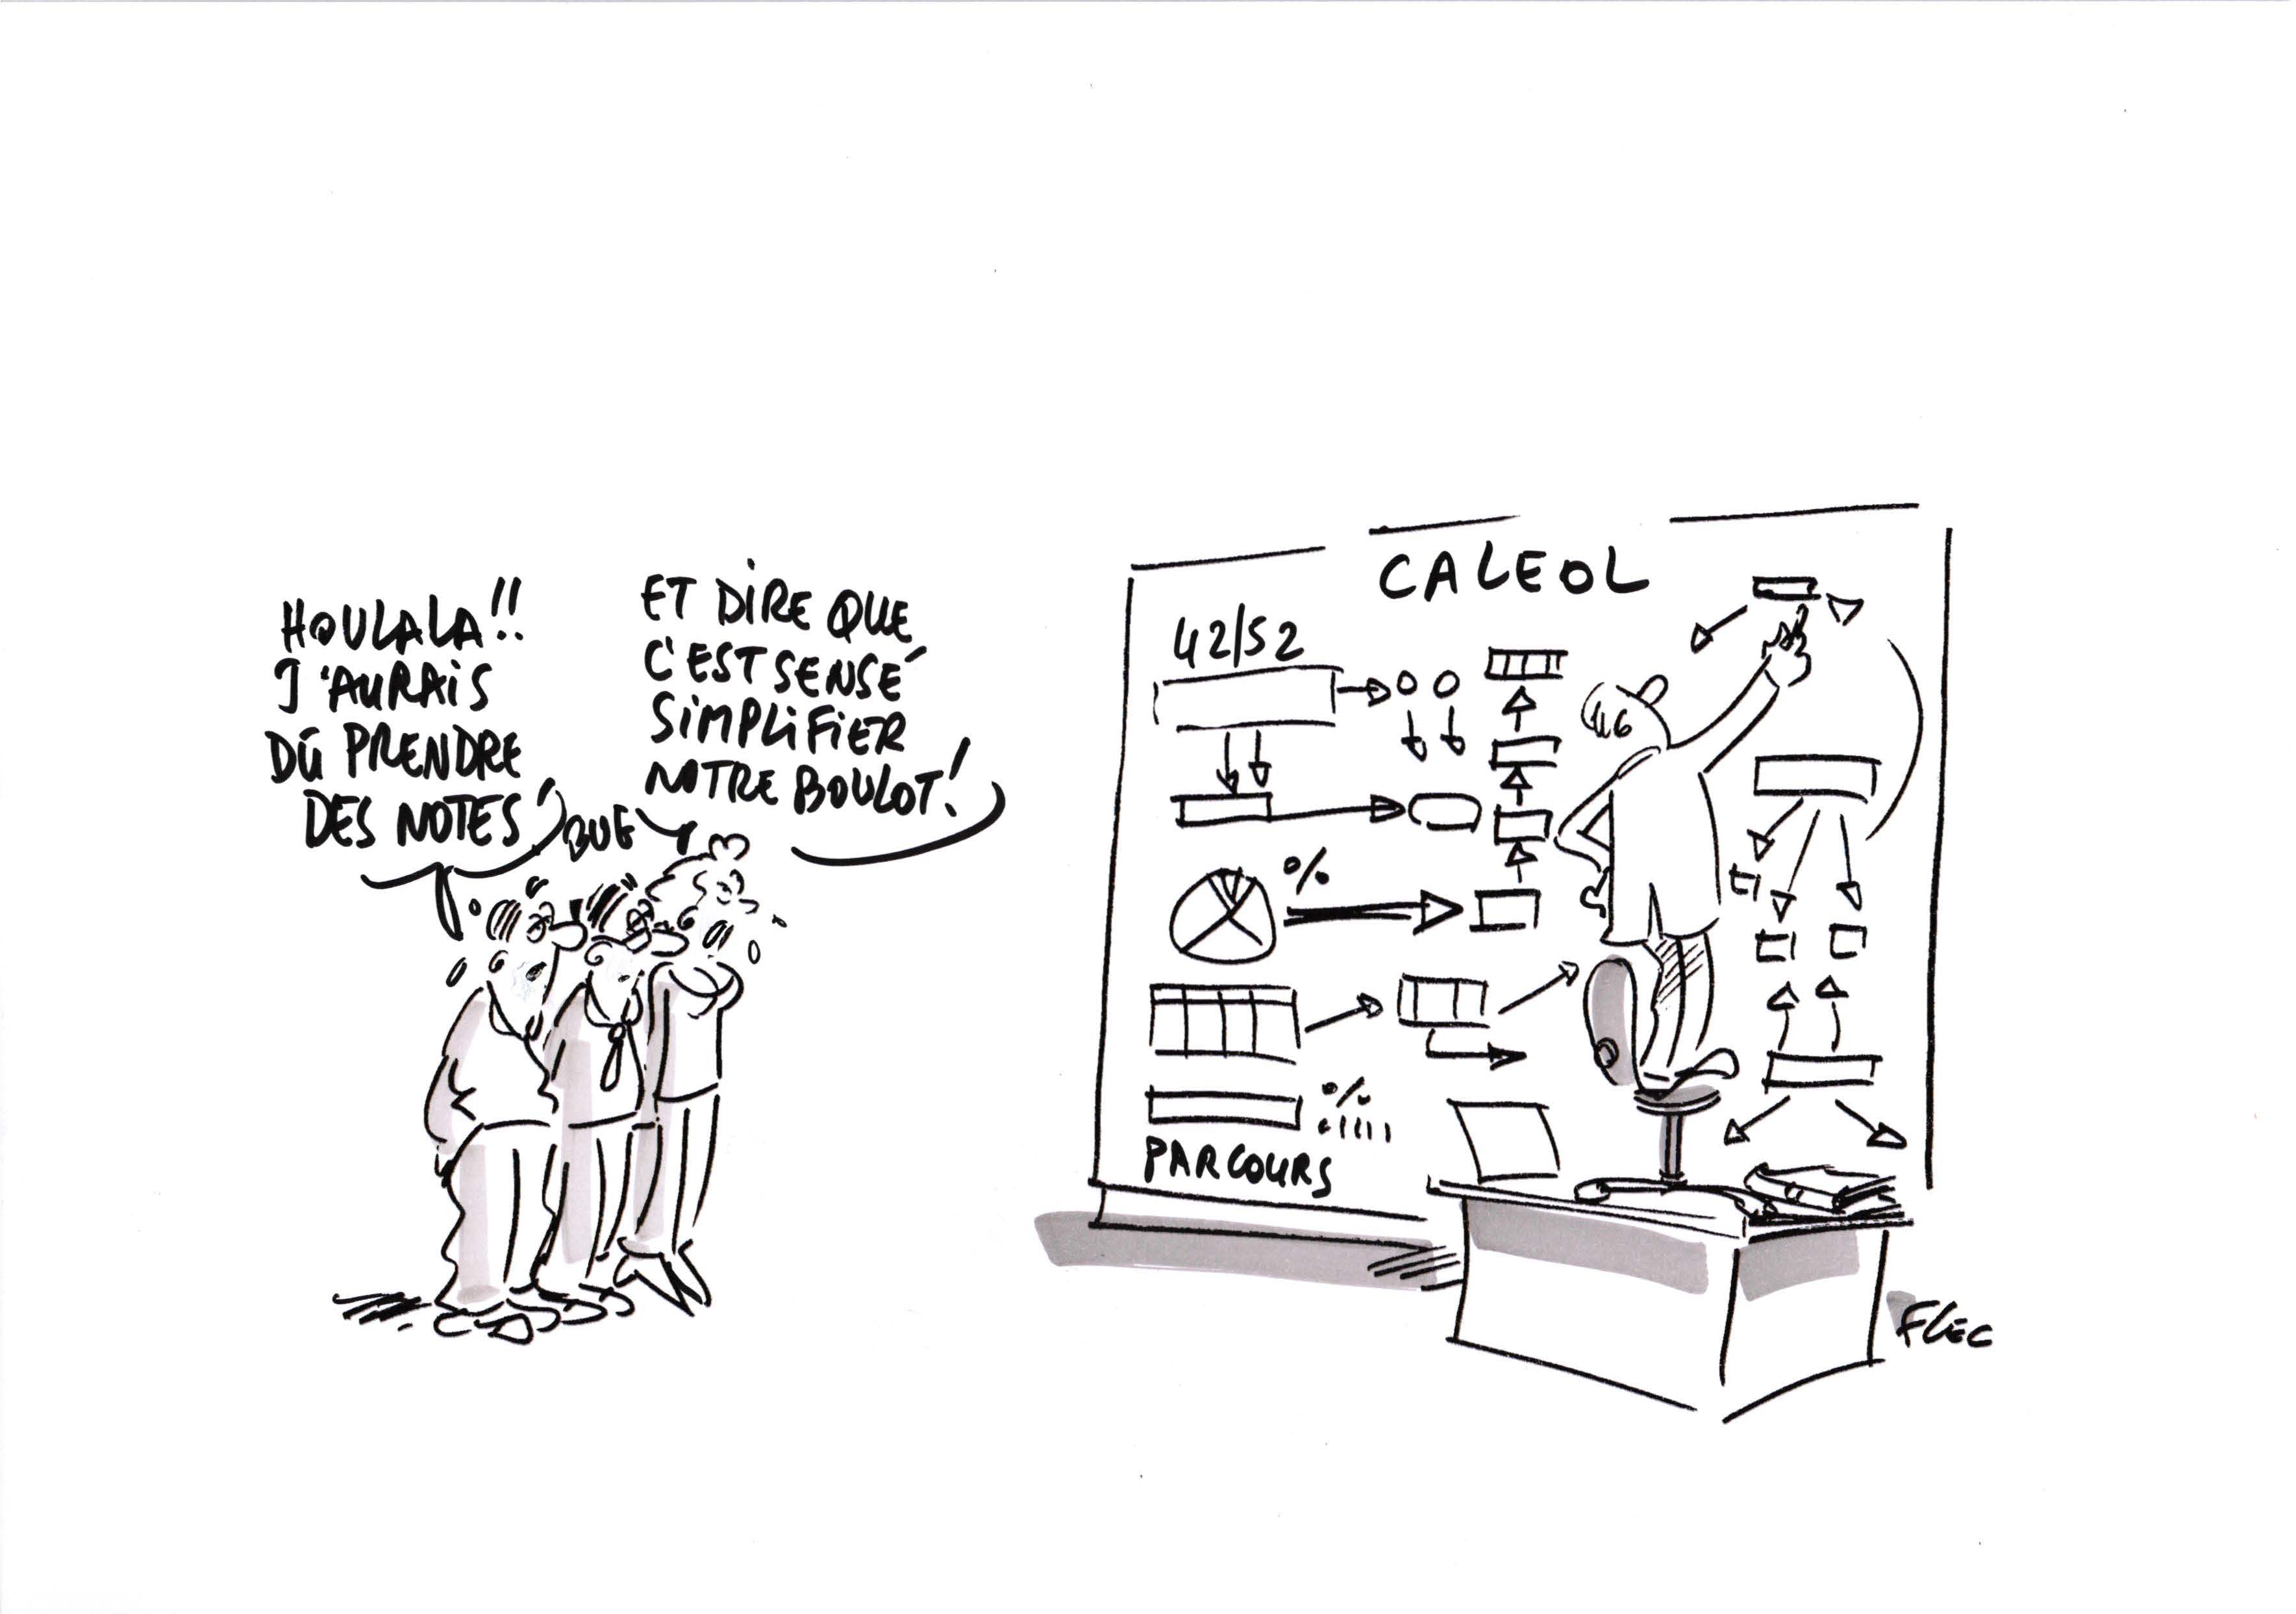 HOULALA!!
J'AURAIS
DÛ PRENDRE
DES NOTES
BUE
ET DIRE QUE
C'EST SENSÉ
SIMPLIFIER
NOTRE BOULOT!
CALEOL
42/52
%
%
PARCOURS
FLEC